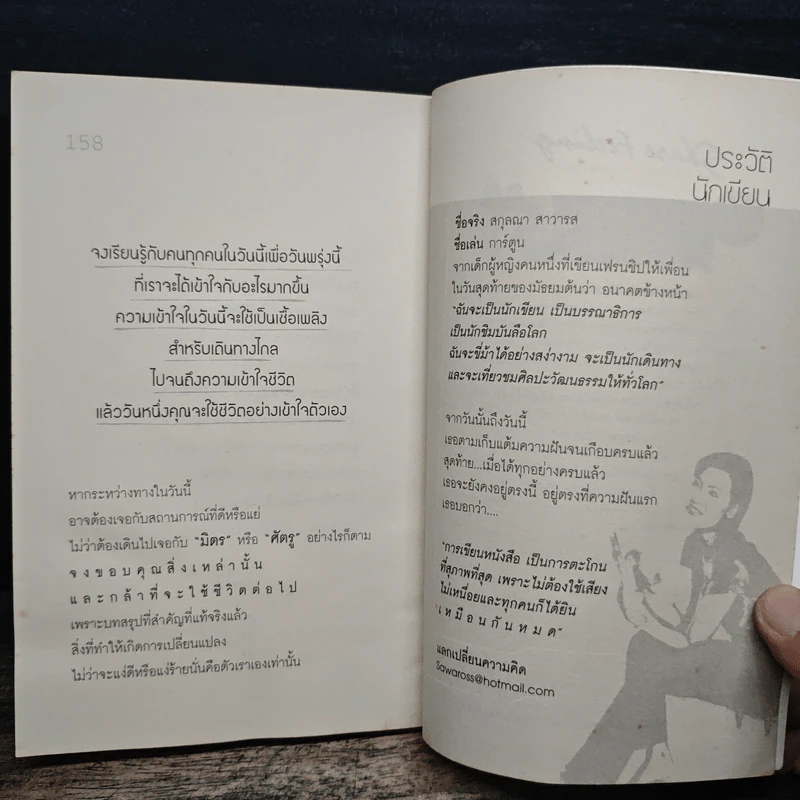 158
จงเรียนรู้กับคนทุกคนในวันนี้เพื่อวันพรุ่งนี้
ที่เราจะได้เข้าใจกับอะไรมากขึ้น
ความเข้าใจในวันนี้จะใช้เป็นเชื้อเพลิง
สำหรับเดินทางไกล
ไปจนถึงความเข้าใจชีวิต
แล้ววันหนึ่งคุณจะใช้ชีวิตอย่างเข้าใจตัวเอง
หากระหว่างทางในวันนี้
อาจต้องเจอกับสถานการณ์ที่ดีหรือแย่
ไม่ว่าต้องเดินไปเจอกับ "มิตร" หรือ "ศัตรู" อย่างไรก็ตาม
จ ง ข อ บ คุ ณ สิ่ ง เ ห ล่ า นั้ น
แ ล ะ ก ล้ า ที่ จ ะ ใ ช้ ชี วิ ต ต่ อ ไ ป
เพราะบทสรุปที่สำคัญที่แท้จริงแล้ว
สิ่งที่ทำให้เกิดการเปลี่ยนแปลง
ไม่ว่าจะแง่ดีหรือแง่ร้ายนั่นคือตัวเราเองเท่านั้น
ประวัติ
นักเขียน
ชื่อจริง สกุลณา สาวารส
ชื่อเล่น การ์ตูน
จากเด็กผู้หญิงคนหนึ่งที่เขียนเฟรนชิปให้เพื่อน
ในวันสุดท้ายของมัธยมต้นว่า อนาคตข้างหน้า
"ฉันจะเป็นนักเขียน เป็นบรรณาธิการ
เป็นนักชิมบันลือโลก
ฉันจะขี่ม้าได้อย่างสง่างาม จะเป็นนักเดินทาง
และจะเที่ยวชมศิลปะวัฒนธรรมให้ทั่วโลก"
จากวันนั้นถึงวันนี้
เธอตามเก็บแต้มความฝันจนเกือบครบแล้ว
สุดท้าย...เมื่อได้ทุกอย่างครบแล้ว
เธอจะยังคงอยู่ตรงนี้ อยู่ตรงที่ความฝันแรก
เธอบอกว่า....
"การเขียนหนังสือ เป็นการตะโกน
ที่สุภาพที่สุด เพราะไม่ต้องใช้เสียง
ไม่เหนื่อยและทุกคนก็ได้ยิน
เ ห มื อ น กั น ห ม ด"
แลกเปลี่ยนความคิด
Sawaross@hotmail.com